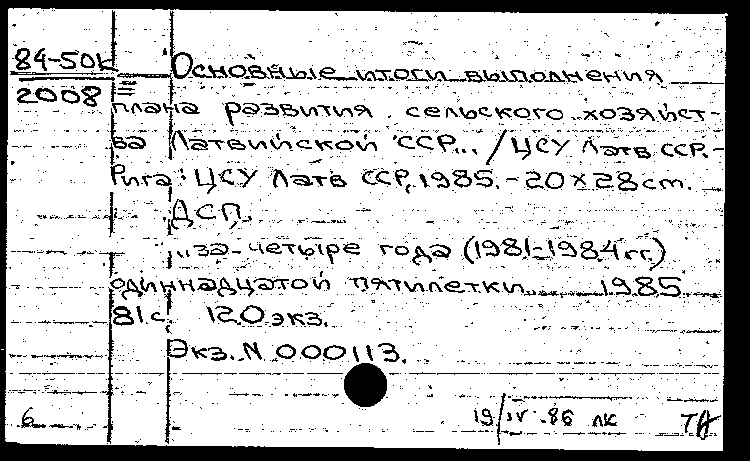 84-50к Основные итоги выполнения
2008 плана развития сельского хозяйст-
ва Латвийской ССР... / ЦСУ Латв ССР.-
Рига: ЦСУ Латв ССР, 1985. - 20 x 28 cm.
ДСП.
... за четыре года (1981-1984 гг.)
одиннадцатой пятилетки. 1985
81 с. 120 экз.
Экз. N 000113.
6 19/IV-86 лк